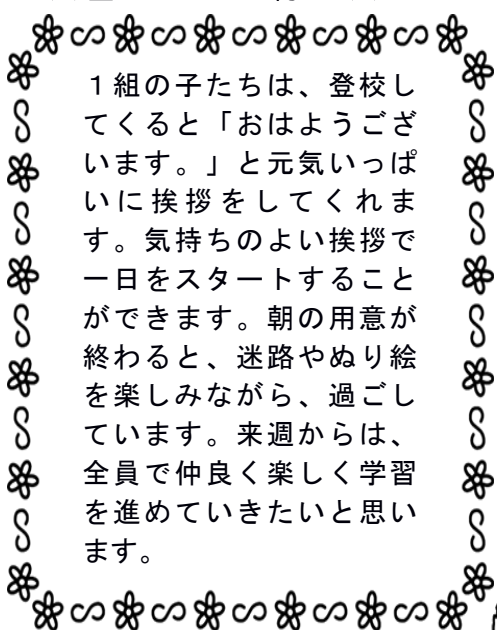 １組の子たちは、登校し
てくると「おはようござ
います。」と元気いっぱ
いに挨拶をしてくれま
す。気持ちのよい挨拶で
一日をスタートすること
ができます。朝の用意が
終わると、迷路やぬり絵
を楽しみながら、過ごし
ています。来週からは、
全員で仲良く楽しく学習
を進めていきたいと思い
ます。